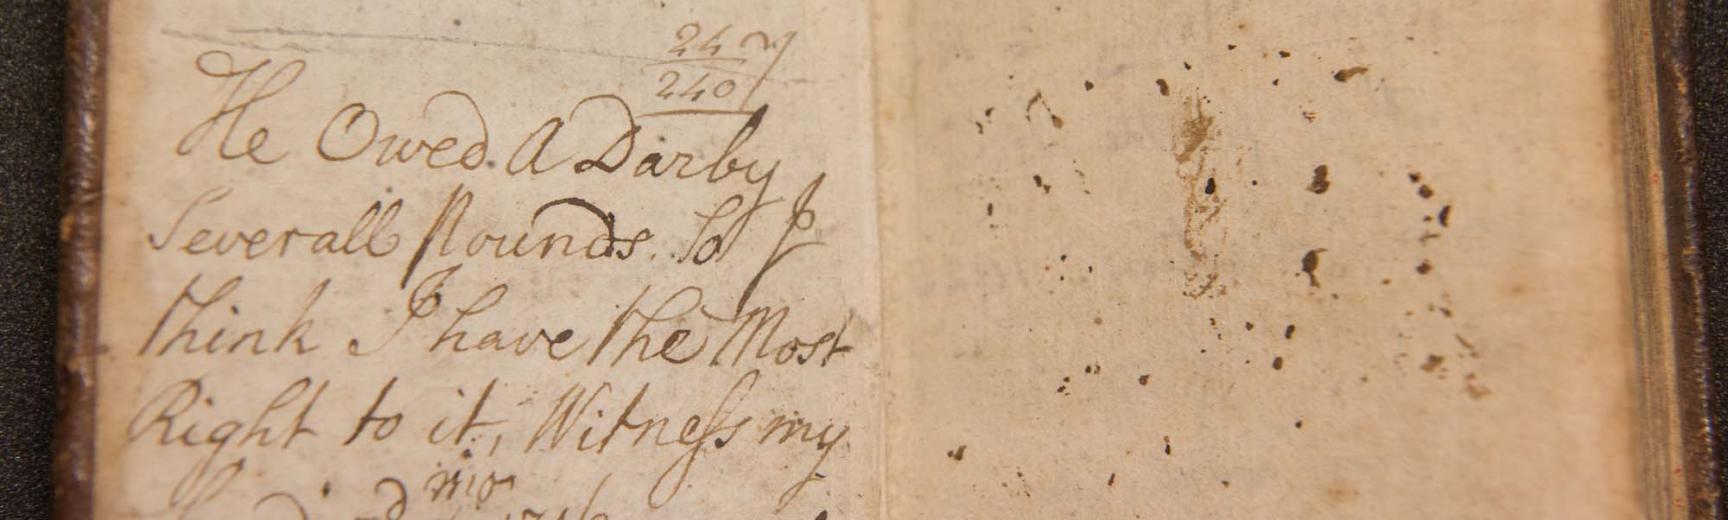 24
240
He Owed A Darby
Severall Pounds. So I
think I have the Most
Right to it, Witneſs my
mo